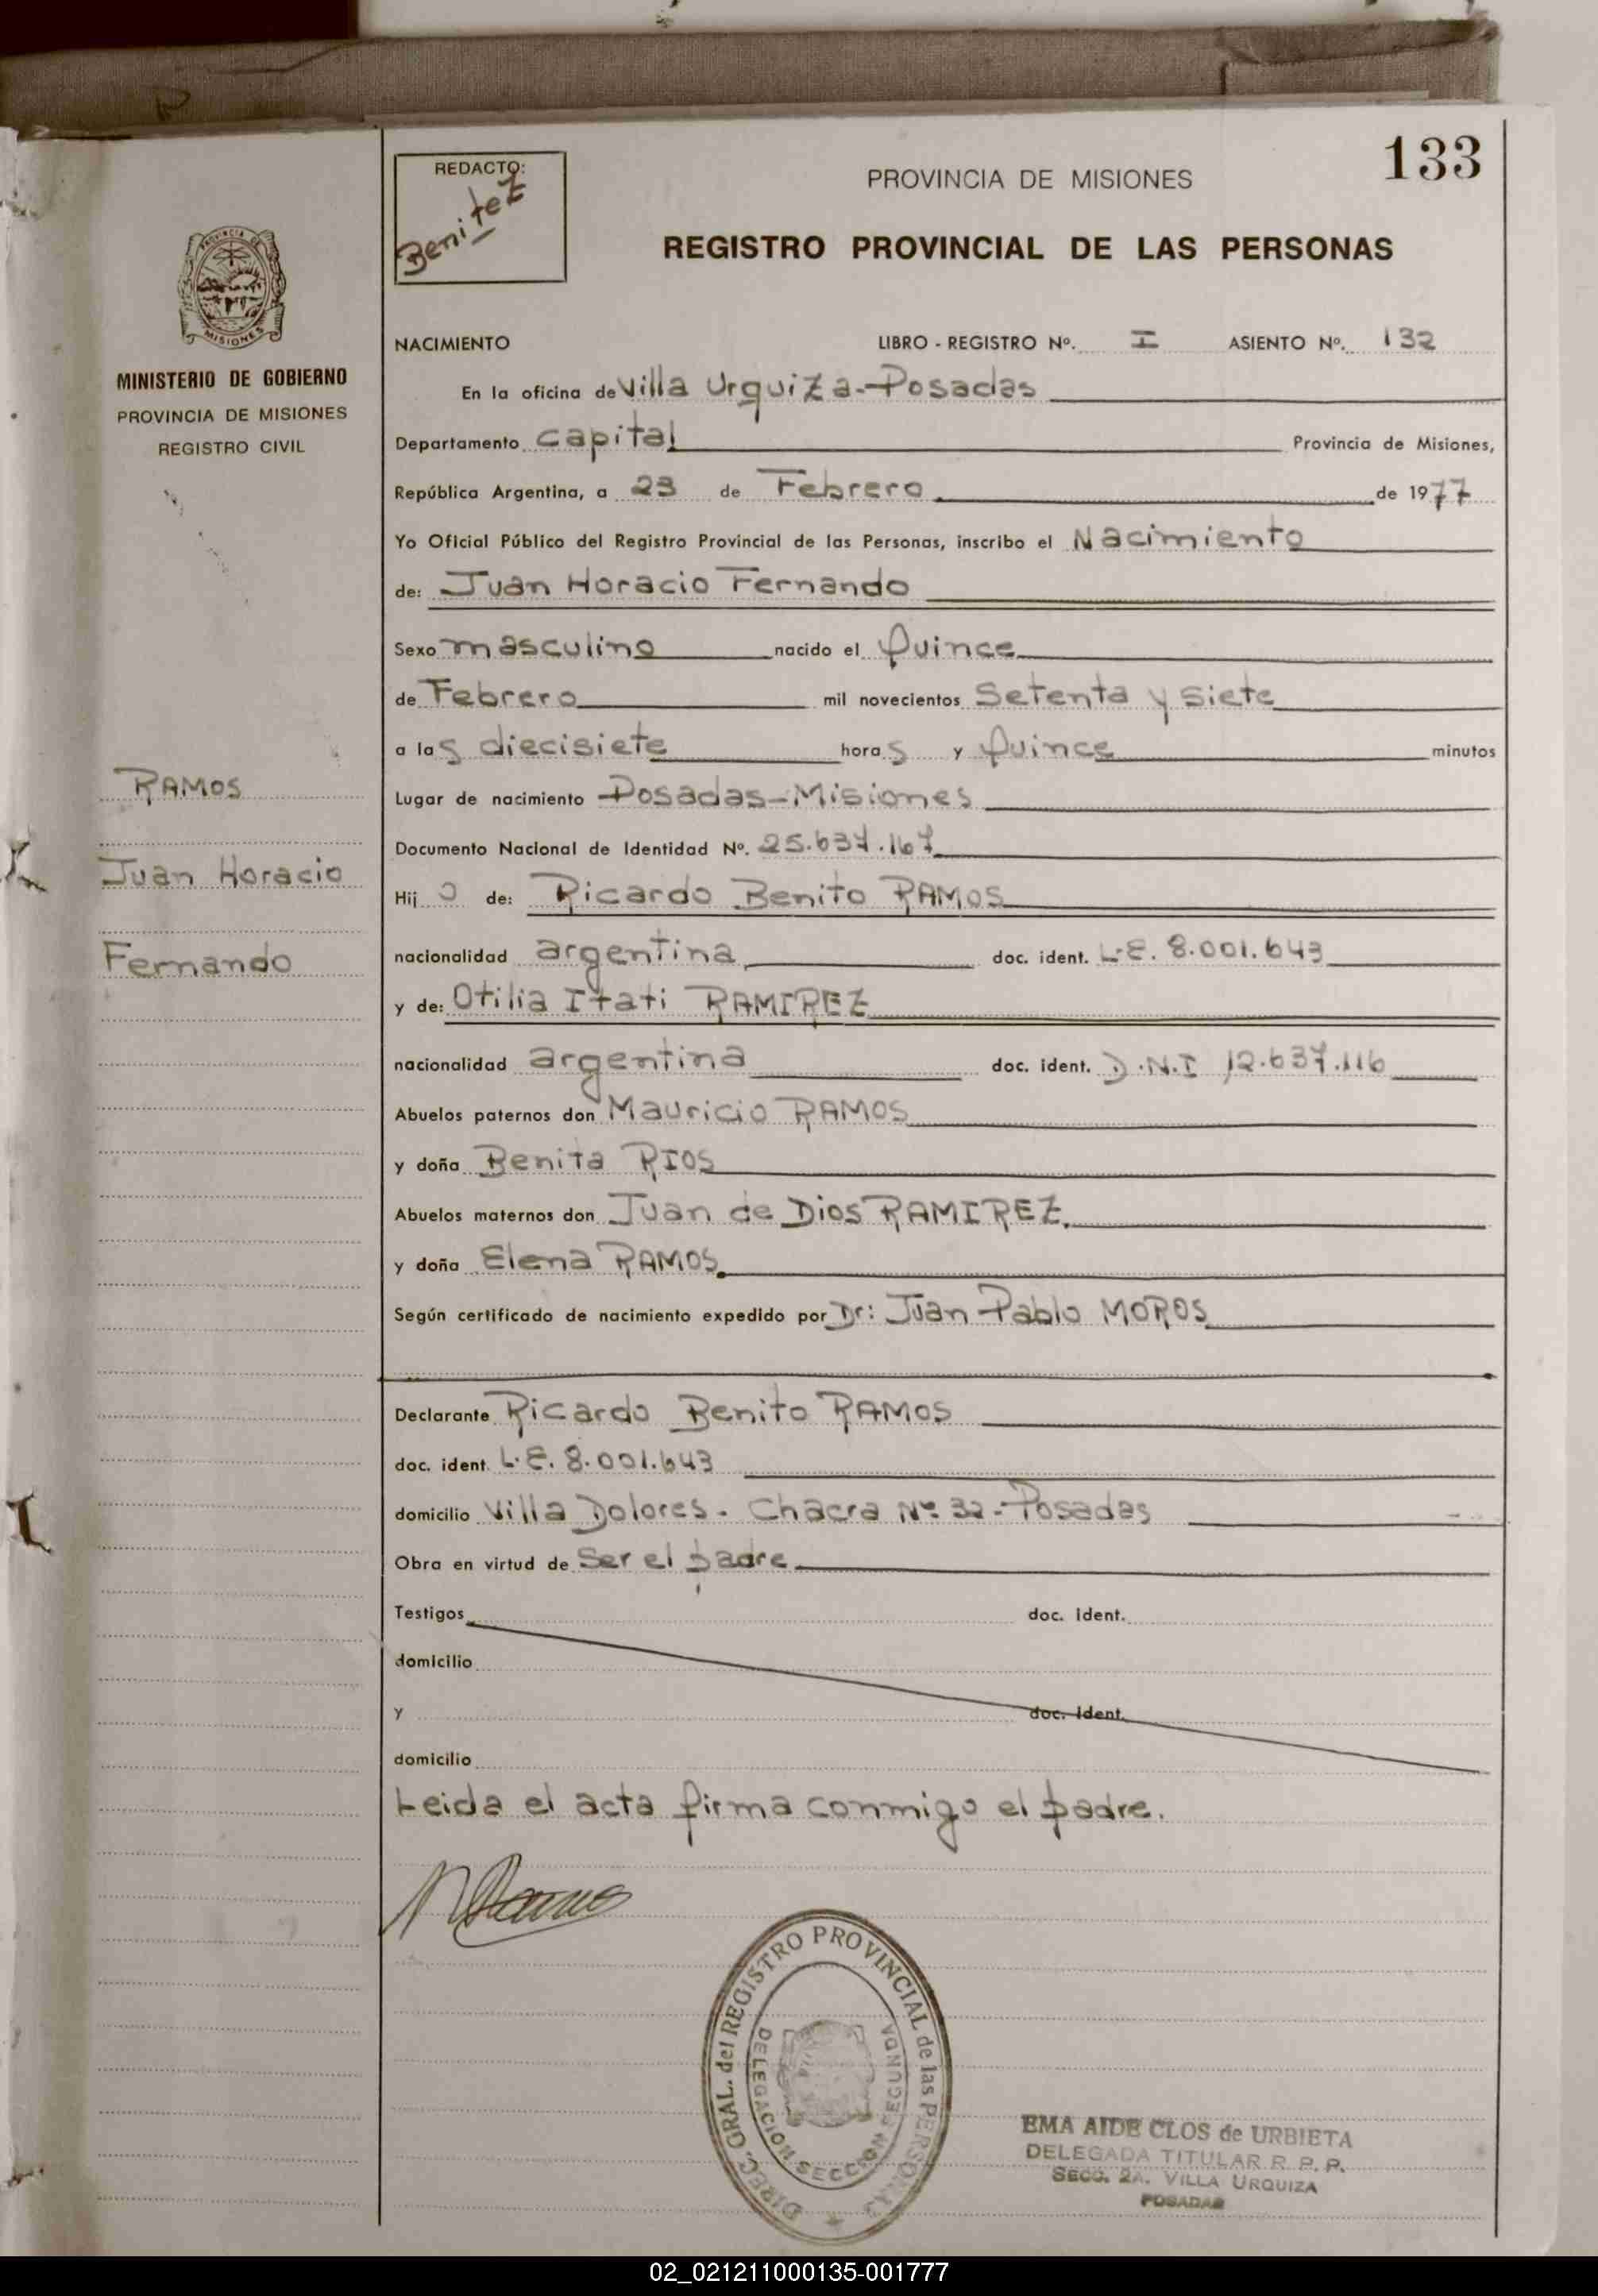 133
REDACTO:
Benitez
PROVINCIA DE MISIONES
REGISTRO PROVINCIAL DE LAS PERSONAS
PROVINCIA DE
MISIONES
MINISTERIO DE GOBIERNO
PROVINCIA DE MISIONES
REGISTRO CIVIL
RAMOS
Juan Horacio
Fernando
NACIMIENTO LIBRO - REGISTRO Nº. I ASIENTO Nº. 132
En la oficina de Villa Urquiza-Posadas
Departamento Capital Provincia de Misiones,
República Argentina, a 23 de Febrero de 1977
Yo Oficial Público del Registro Provincial de las Personas, inscribo el Nacimiento
de: Juan Horacio Fernando
Sexo masculino nacido el Quince
de Febrero mil novecientos Setenta y siete
a las diecisiete horas y Quince minutos
Lugar de nacimiento Posadas-Misiones
Documento Nacional de Identidad Nº. 25.637.167
Hijo de: Ricardo Benito RAMOS
nacionalidad argentina doc. ident. L.E. 8.001.643
y de: Otilia Itati RAMIREZ
nacionalidad argentina doc. ident. D.N.I 12.637.116
Abuelos paternos don Mauricio RAMOS
y doña Benita RIOS
Abuelos maternos don Juan de Dios RAMIREZ.
y doña Elena RAMOS.
Según certificado de nacimiento expedido por Dr: Juan Pablo MOROS
Declarante Ricardo Benito RAMOS
doc. ident. L.E. 8.001.643
domicilio Villa Dolores. Chacra Nº 32-Posadas
Obra en virtud de Ser el padre
Testigos doc. ident.
domicilio
y doc. ident.
domicilio
Leida el acta firma conmigo el padre.
DIREC. GRAL. del REGISTRO PROVINCIAL de las PERSONAS
DELEGACION SECCION SEGUNDA
EMA AIDE CLOS de URBIETA
DELEGADA TITULAR R. P. P.
SECC. 2A. VILLA URQUIZA
POSADAS
02_021211000135-001777